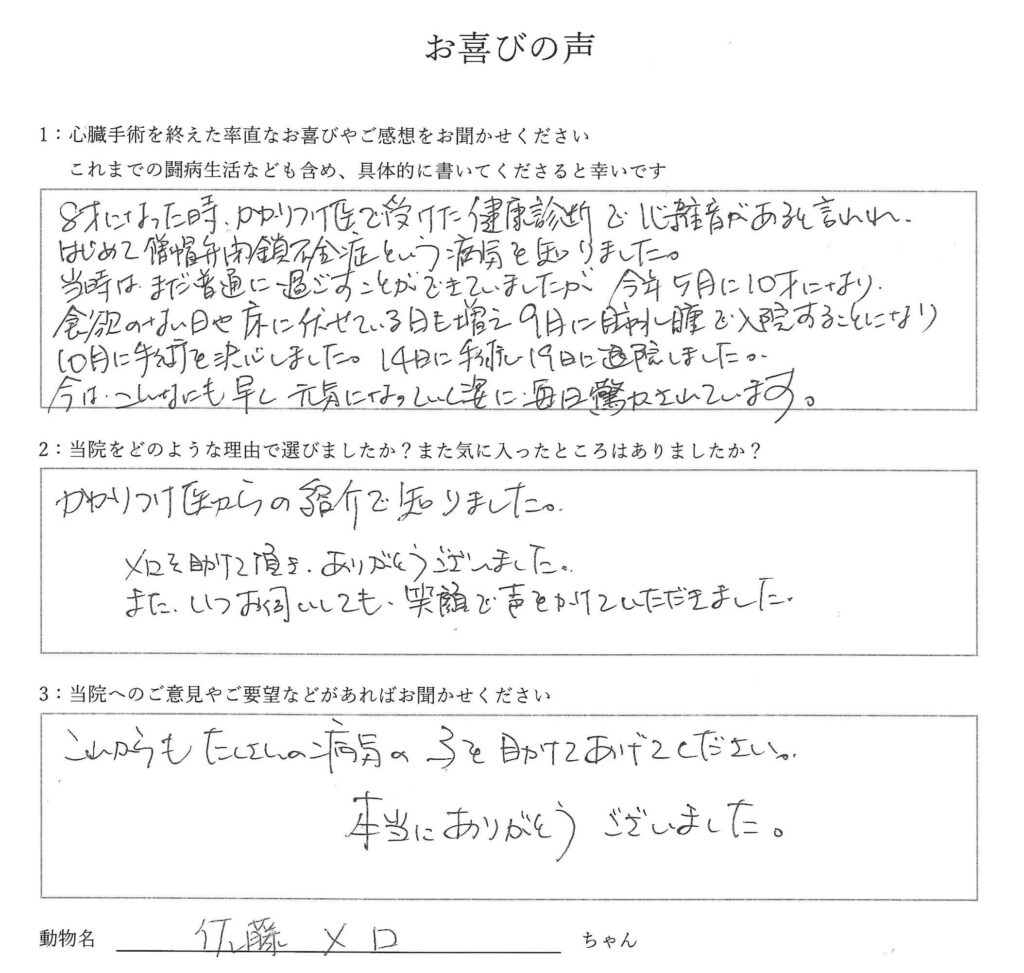 お喜びの声
1：心臓手術を終えた率直なお喜びやご感想をお聞かせください
これまでの闘病生活なども含め、具体的に書いてくださると幸いです
8才になった時、かかりつけ医で受けた健康診断で心雑音があると言われ、
はじめて僧帽弁閉鎖不全症という病気を知りました。
当時はまだ普通に過ごすことができていましたが 今年5月に10才になり、
食欲のない日や床に伏せている日も増え9月に肺水腫で入院することになり
10月に手術を決心しました。14日に手術し19日に退院しました。
今は、こんなにも早く元気になっていく姿に毎日驚かされています。
2：当院をどのような理由で選びましたか？また気に入ったところはありましたか？
かかりつけ医からの紹介で知りました。
メロを助けて頂き、ありがとうございました。
また、いつお伺いしても、笑顔で声をかけていただきました。
3：当院へのご意見やご要望などがあればお聞かせください
これからもたくさんの病気の子を助けてあげてください。
本当にありがとうございました。
動物名 佐藤 メロ ちゃん